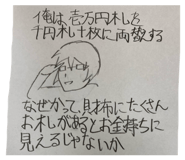 俺は壱万円札を
千円札十枚に両替する
なぜかって、財布にたくさん
お札があるとお金持ちに
見えるじゃないか